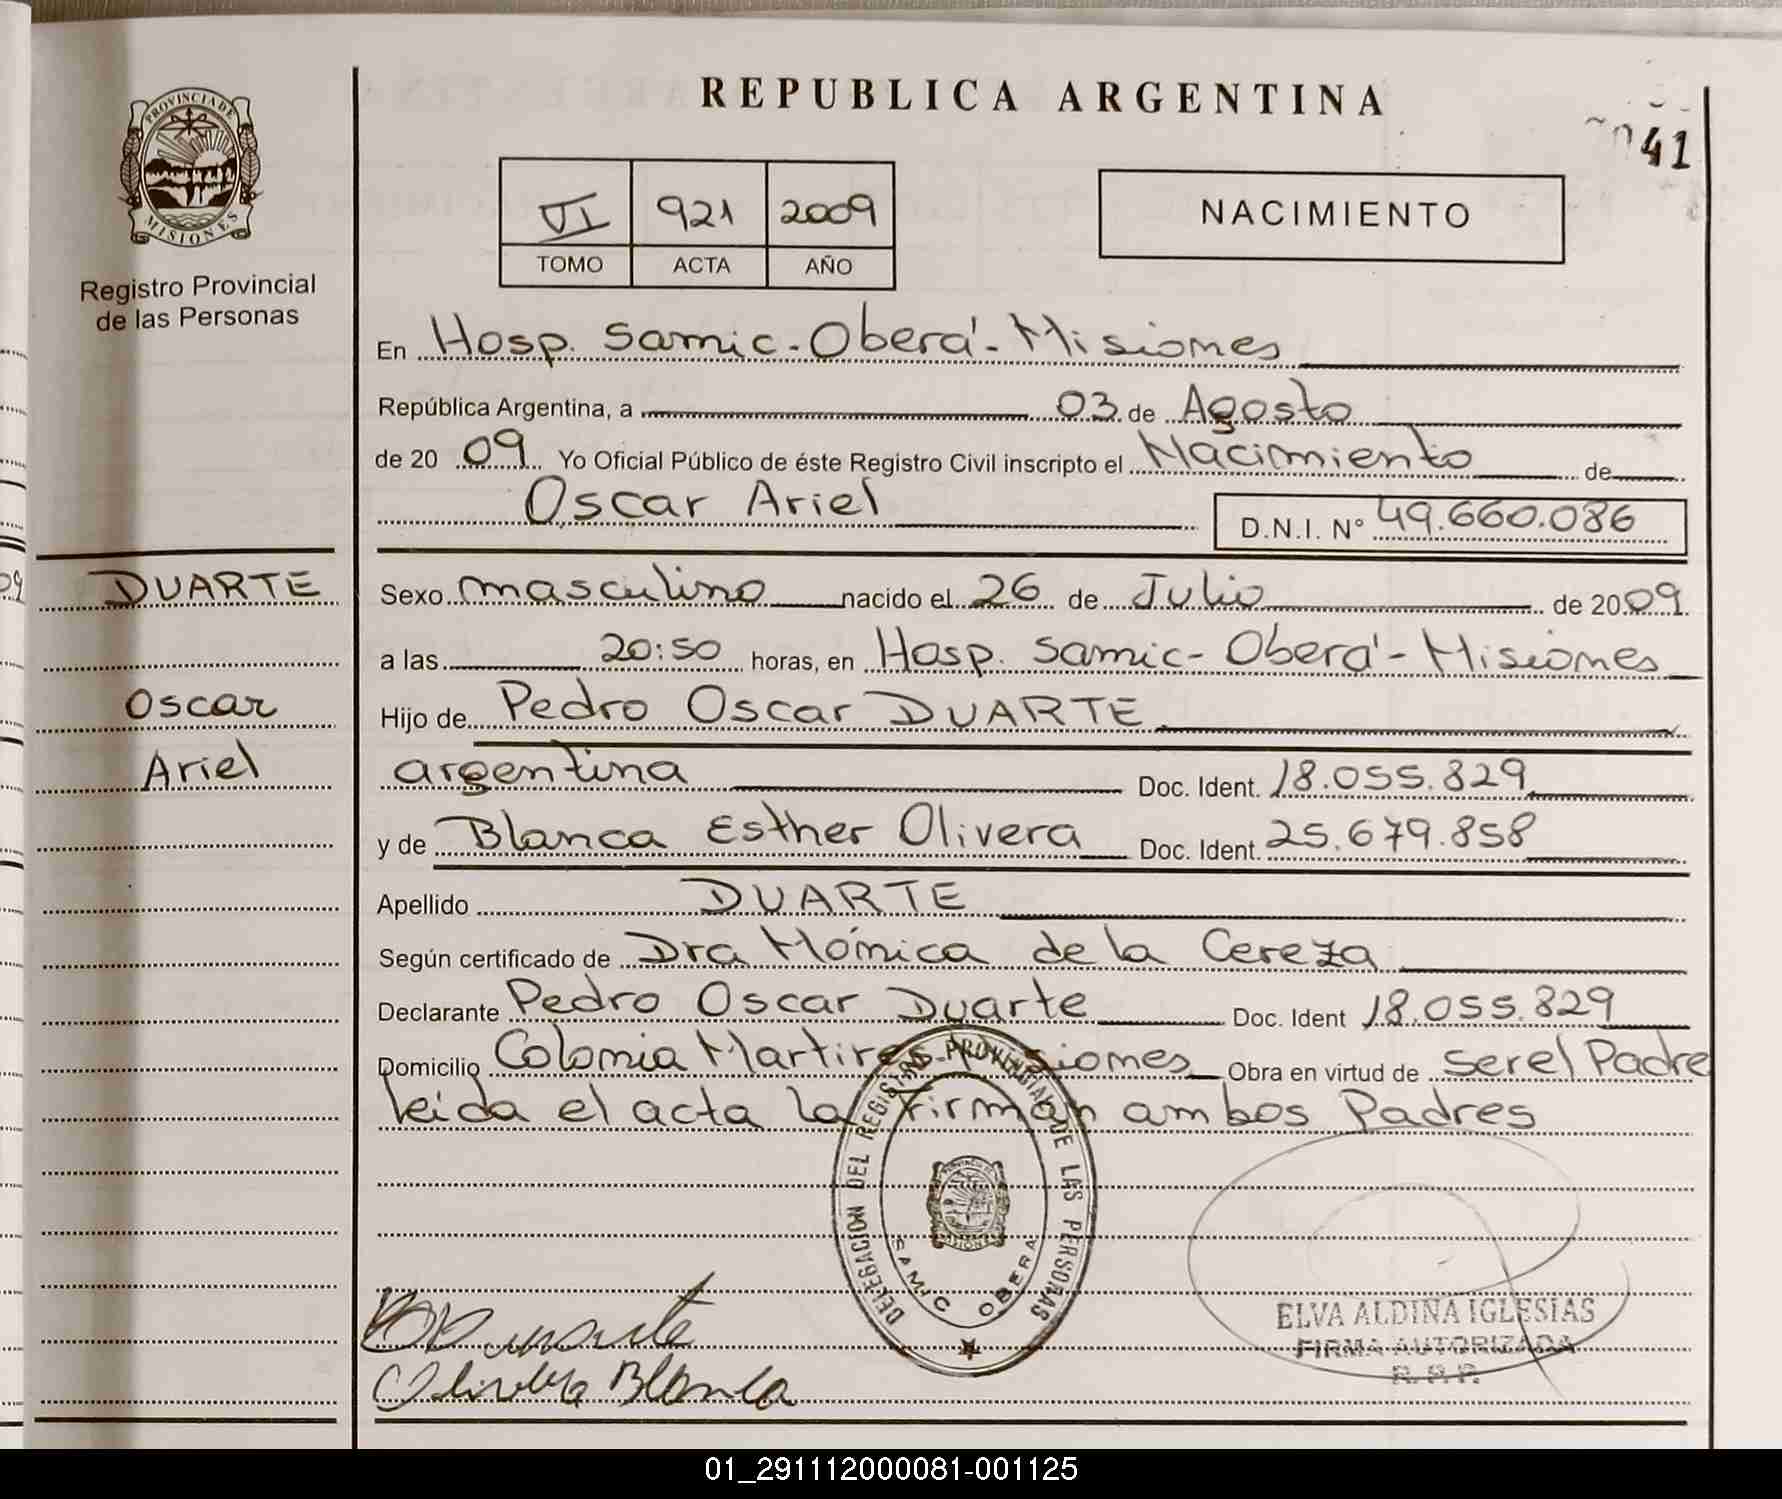 REPUBLICA ARGENTINA
41
PROVINCIA DE
MISIONES
Registro Provincial
de las Personas
VI 921 2009
TOMO ACTA AÑO
NACIMIENTO
En Hosp. Samic - Oberá - Misiones
República Argentina, a 03 de Agosto
de 20 09 Yo Oficial Público de éste Registro Civil inscripto el Nacimiento de
Oscar Ariel D.N.I. N° 49.660.086
DUARTE
Oscar
Ariel
Sexo masculino nacido el 26 de Julio de 20 09
a las 20:50 horas, en Hosp. Samic - Oberá - Misiones
Hijo de Pedro Oscar DUARTE
argentina Doc. Ident. 18.055.829
y de Blanca Esther Olivera Doc. Ident. 25.679.858
Apellido DUARTE
Según certificado de Dra Mónica de la Cereza
Declarante Pedro Oscar Duarte Doc. Ident 18.055.829
Domicilio Colonia Martires - Misiones Obra en virtud de ser el Padre
leida el acta la firman ambos Padres
DELEGACION DEL REGISTRO PROVINCIAL DE LAS PERSONAS
PROVINCIA DE
MISIONES
SAMIC OBERA
Duarte
Olivera Blanca
ELVA ALDINA IGLESIAS
FIRMA AUTORIZADA
R. P. P.
01_291112000081-001125